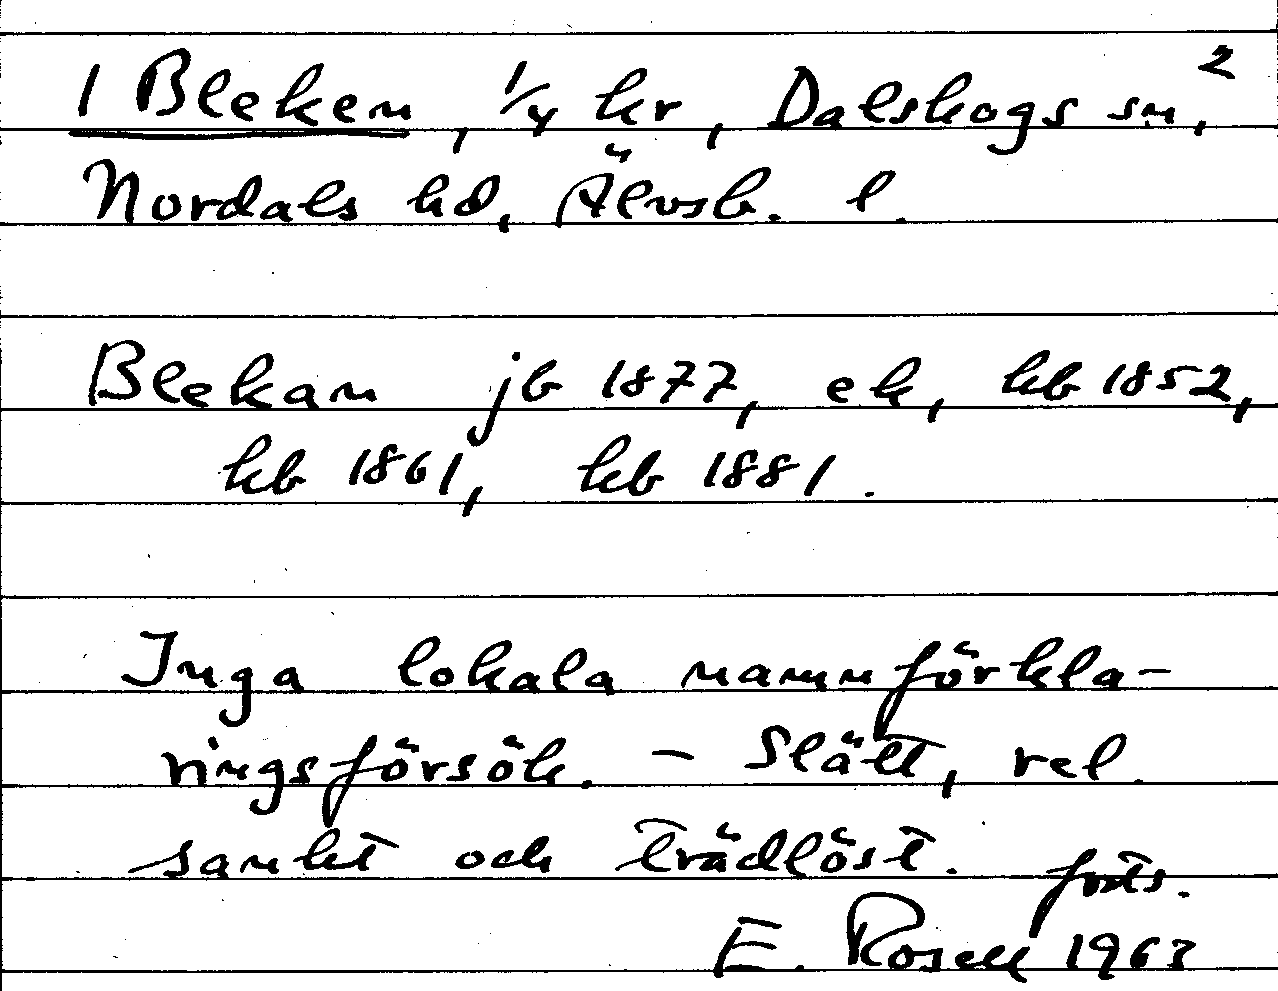 1 Bleken, 1/4 kr, Dalskogs sn, 2
Nordals hd, Älvsb. l.
Blekan jb 1877, ek, kb 1852,
kb 1861, kb 1881.
Inga lokala namnförkla-
ringsförsök. - Slätt, rel.
sankt och trädlöst. forts.
E. Rosell 1963